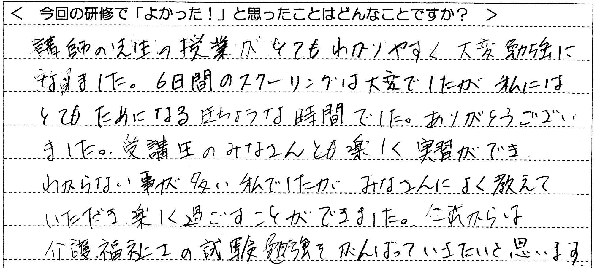 < 今回の研修で「よかった!」と思ったことはどんなことですか? >
講師の先生の授業がとてもわかりやすく大変勉強に
なりました。6日間のスクーリングは大変でしたが私には
とてもためになるきちょうな時間でした。ありがとうござい
ました。受講生のみなさんとも楽しく実習ができ
わからない事が多い私でしたが みなさんによく教えて
いただき楽しく過ごすことができました。 からは
介護福祉士の試験勉強をがんばっていきたいと思います